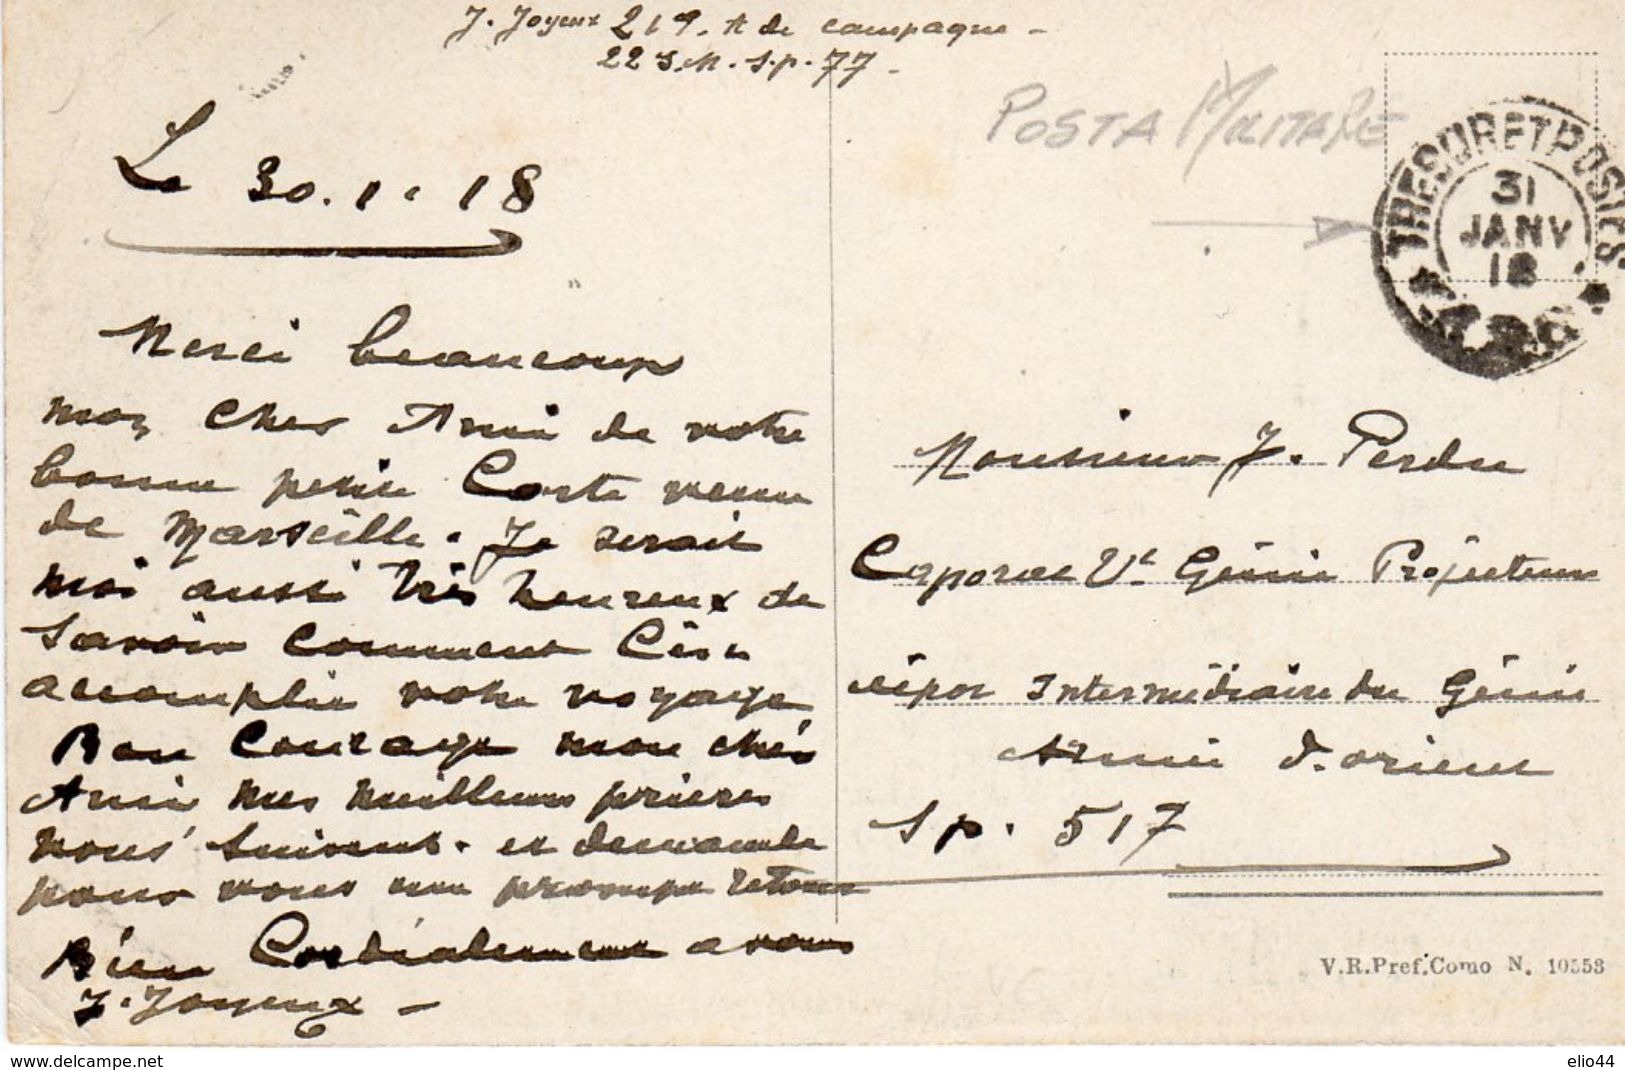 J. Joyeux 219. A de campagne -
22 S.M. S.p. 77 -
POSTA MILITARE
TRESOR ET POSTES
31
JANV
18
Le 30.1.18
Merci beaucoup
mon cher Ami de votre
bonne petite Carte venue
de Marseille. Je serais
moi aussi très heureux de
savoir comment C'est
accomplie votre voyage,
Bon Courage mon cher
Ami mes meilleures prières
vous suivent. et demande
pour vous un prompt retour
Bien Cordialement a vous
J. Joyeux -
Monsieur J. Perdu
Caporal Génie Projecteurs
dépot Intermédiaire du Génie
Armée d'orient
Sp. 517
V.R.Pref.Como N. 10553
www.delcampe.net
elio44